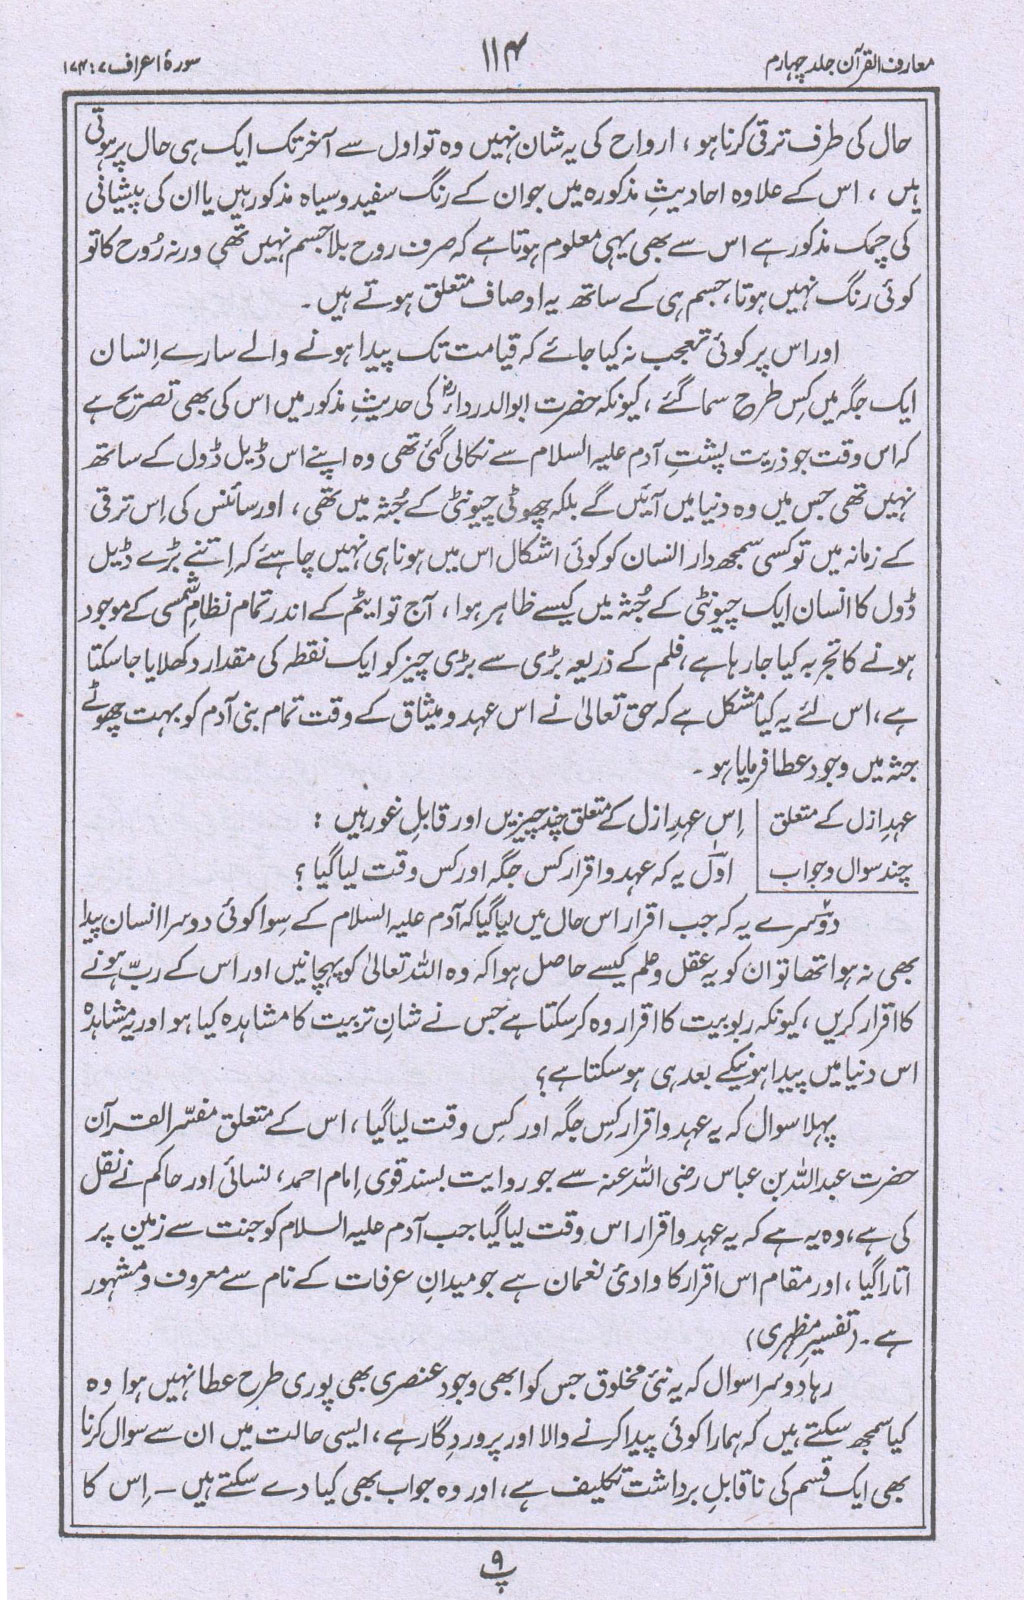 معارف القرآن جلد چہارم
۱۱۴
سورۂ اعراف ۷ : ۱۷۴
حال کی طرف ترقی کرنا ہو ، ارواح کی یہ شان نہیں وہ تو اول سے آخر تک ایک ہی حال پر ہوتی
ہیں ، اس کے علاوہ احادیثِ مذکورہ میں جو ان کے رنگ سفید و سیاہ مذکور ہیں یا ان کی پیشانی
کی چمک مذکور ہے اس سے بھی یہی معلوم ہوتا ہے کہ صرف روح بلا جسم نہیں تھی ورنہ رُوح کا تو
کوئی رنگ نہیں ہوتا، جسم ہی کے ساتھ یہ اوصاف متعلق ہوتے ہیں ۔
اور اس پر کوئی تعجب نہ کیا جائے کہ قیامت تک پیدا ہونے والے سارے اِنسان
ایک جگہ میں کِس طرح سما گئے ، کیونکہ حضرت ابوالدرداءؓ کی حدیثِ مذکور میں اس کی بھی تصریح ہے
کہ اس وقت جو ذریت پشتِ آدم علیہ السلام سے نکالی گئی تھی وہ اپنے اس ڈیل ڈول کے ساتھ
نہیں تھی جس میں وہ دنیا میں آئیں گے بلکہ چھوٹی چیونٹی کے جُثہ میں تھی ، اور سائنس کی اِس ترقی
کے زمانہ میں تو کسی سمجھ دار انسان کو کوئی اشکال اس میں ہونا ہی نہیں چاہئے کہ اِتنے بڑے ڈیل
ڈول کا انسان ایک چیونٹی کے جُثہ میں کیسے ظاہر ہوا ، آج تو ایٹم کے اندر تمام نظامِ شمسی کے موجود
ہونے کا تجربہ کیا جا رہا ہے ، فلم کے ذریعہ بڑی سے بڑی چیز کو ایک نقطہ کی مقدار دکھلایا جا سکتا
ہے ، اس لئے یہ کیا مشکل ہے کہ حق تعالیٰ نے اس عہد و میثاق کے وقت تمام بنی آدم کو بہت چھوٹے
جثہ میں وجود عطا فرمایا ہو ۔
عہدِ ازل کے متعلق
چند سوال و جواب
اِس عہدِ ازل کے متعلق چند چیزیں اور قابلِ غور ہیں :
اوّل یہ کہ عہد و اقرار کس جگہ اور کس وقت لیا گیا ؟
دوسرے یہ کہ جب اقرار اس حال میں لیا گیا کہ آدم علیہ السلام کے سوا کوئی دوسرا انسان پیدا
بھی نہ ہوا تھا تو ان کو یہ عقل و علم کیسے حاصل ہوا کہ وہ اللہ تعالیٰ کو پہچانیں اور اس کے ربّ ہونے
کا اقرار کریں ، کیونکہ ربوبیت کا اقرار وہ کر سکتا ہے جس نے شانِ تربیت کا مشاہدہ کیا ہو اور یہ مشاہدہ
اس دنیا میں پیدا ہونیکے بعد ہی ہو سکتا ہے ؟
پہلا سوال کہ یہ عہد و اقرار کِس جگہ اور کِس وقت لیا گیا ، اس کے متعلق مفسّر القرآن
حضرت عبداللہ بن عباس رضی اللہ عنہ سے جو روایت بسند قوی اِمام احمد ، نسائی اور حاکم نے نقل
کی ہے ، وہ یہ ہے کہ یہ عہد و اقرار اس وقت لیا گیا جب آدم علیہ السلام کو جنت سے زمین پر
اتارا گیا ، اور مقام اس اقرار کا وادیٔ نعمان ہے جو میدانِ عرفات کے نام سے معروف و مشہور
ہے ۔ (تفسیرِ مظہری)
رہا دوسرا سوال کہ یہ نئی مخلوق جس کو ابھی وجود عنصری بھی پوری طرح عطا نہیں ہوا وہ
کیا سمجھ سکتے ہیں کہ ہمارا کوئی پیدا کرنے والا اور پروردِگار ہے ، ایسی حالت میں ان سے سوال کرنا
بھی ایک قسم کی ناقابلِ برداشت تکلیف ہے ، اور وہ جواب بھی کیا دے سکتے ہیں ۔ اِس کا
پ ۹